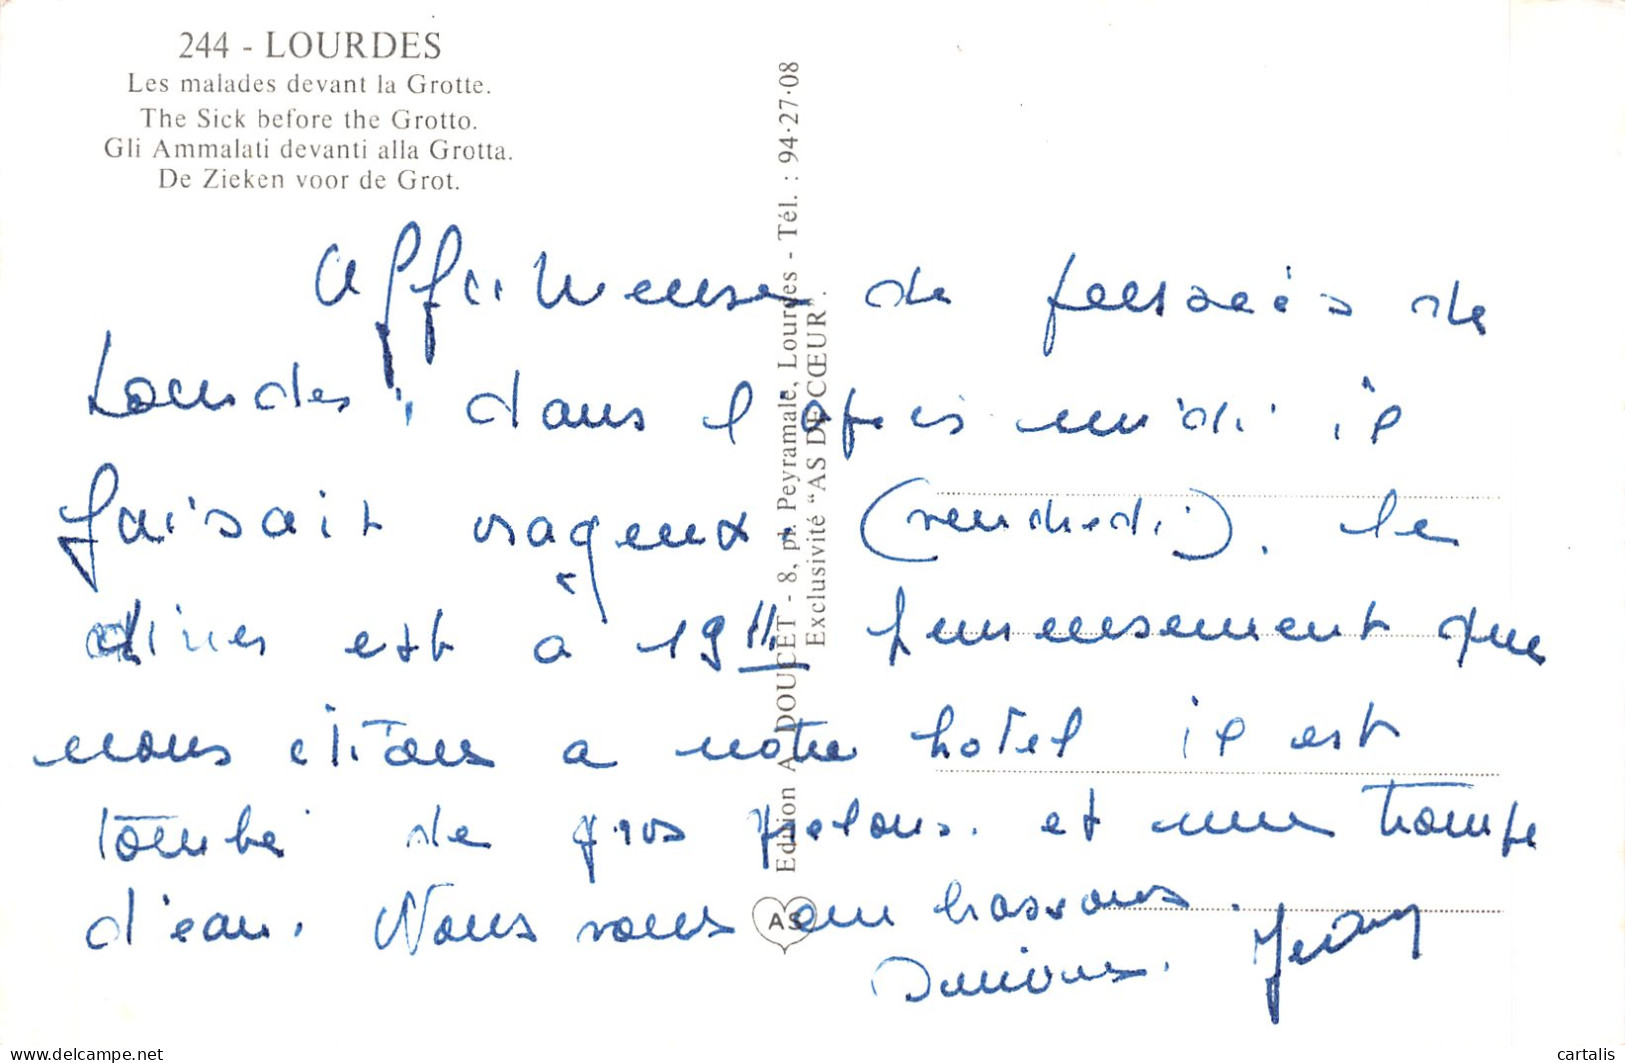 244 - LOURDES
Les malades devant la Grotte.
The Sick before the Grotto.
Gli Ammalati devanti alla Grotta.
De Zieken voor de Grot.
Edition A. DOUCET - 8, pl. Peyramale, Lourdes - Tél. : 94-27-08
Exclusivité "AS DE CŒUR".
AS
Affectueuses de pensées de
Lourdes, dans l'après midi il
faisait orageux (vendredi). le
diner est à 19 H heureusement que
nous étions a notre hotel il est
tombé de gros grelons. et une trompe
d'eau. Nous vous embrassons.
Jean
cartalis